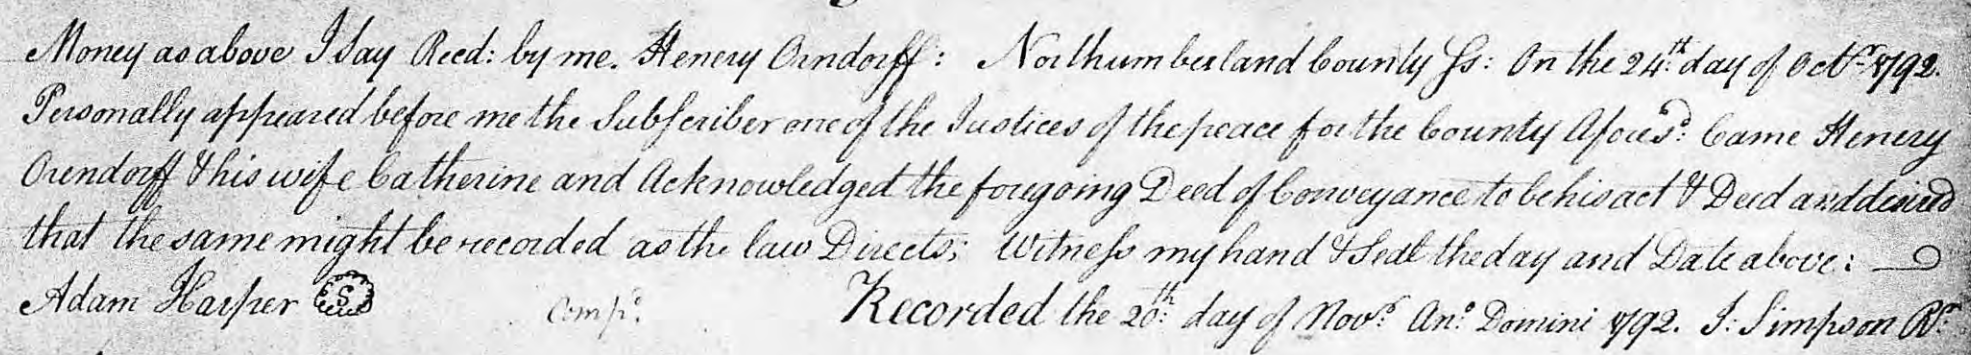 Money as above I Say Recd: by me. Henery Orndorff: Northumberland County Ss: On the 24th. day of Octr. 1792.
Personally appeared before me the Subscriber one of the Justices of the peace for the County Afores.d Came Henery
Orendorff & his wife Catherine and Acknowledged the foregoing Deed of Conveyance to be his act & Deed and desired
that the same might be recorded as the law Directs; Witness my hand & Seal the day and Date above:
Adam Harper S Comp.d Recorded the 20th. day of Nov.r An.o Domini 1792. J: Simpson Rr.